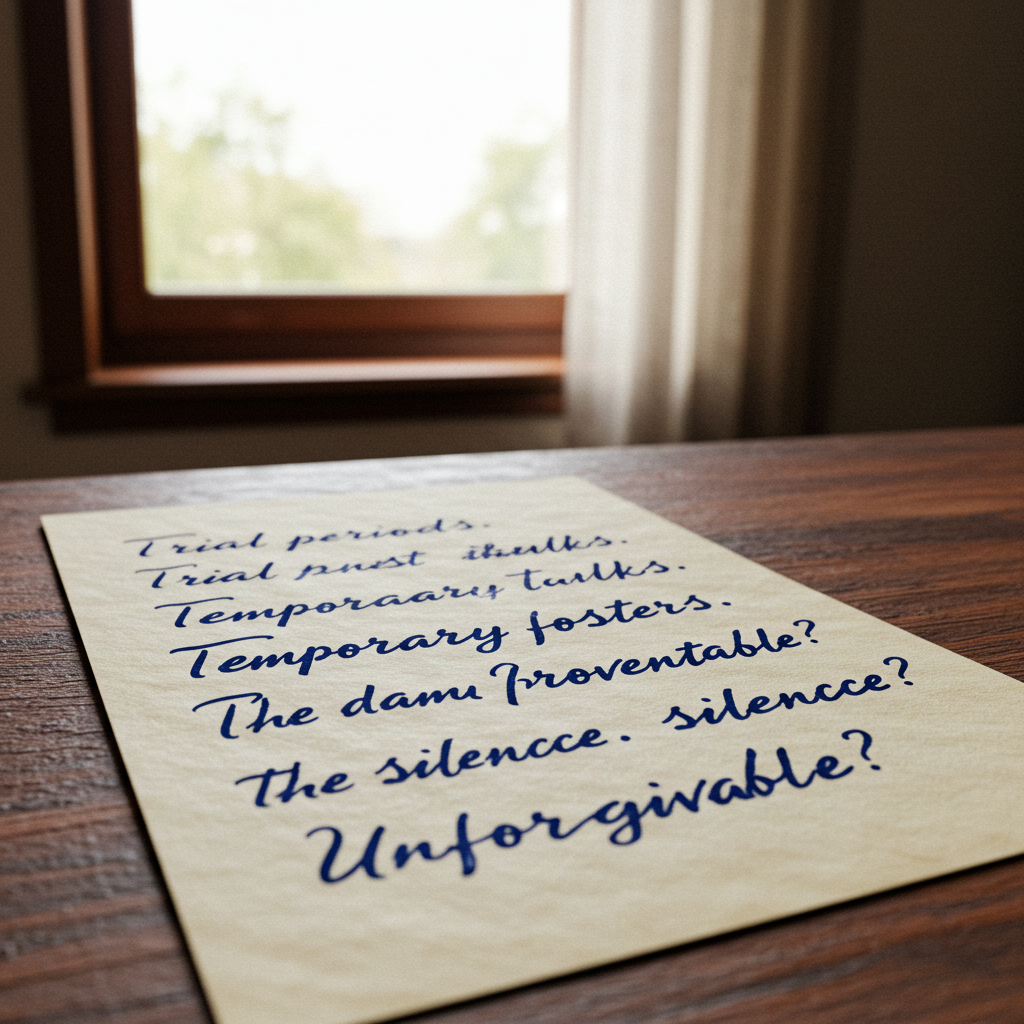 Trial periods.
Trial
Temporaary
Temporary fosters.
The damu Proventable?
The silencce. silencce?
Unforgivable?